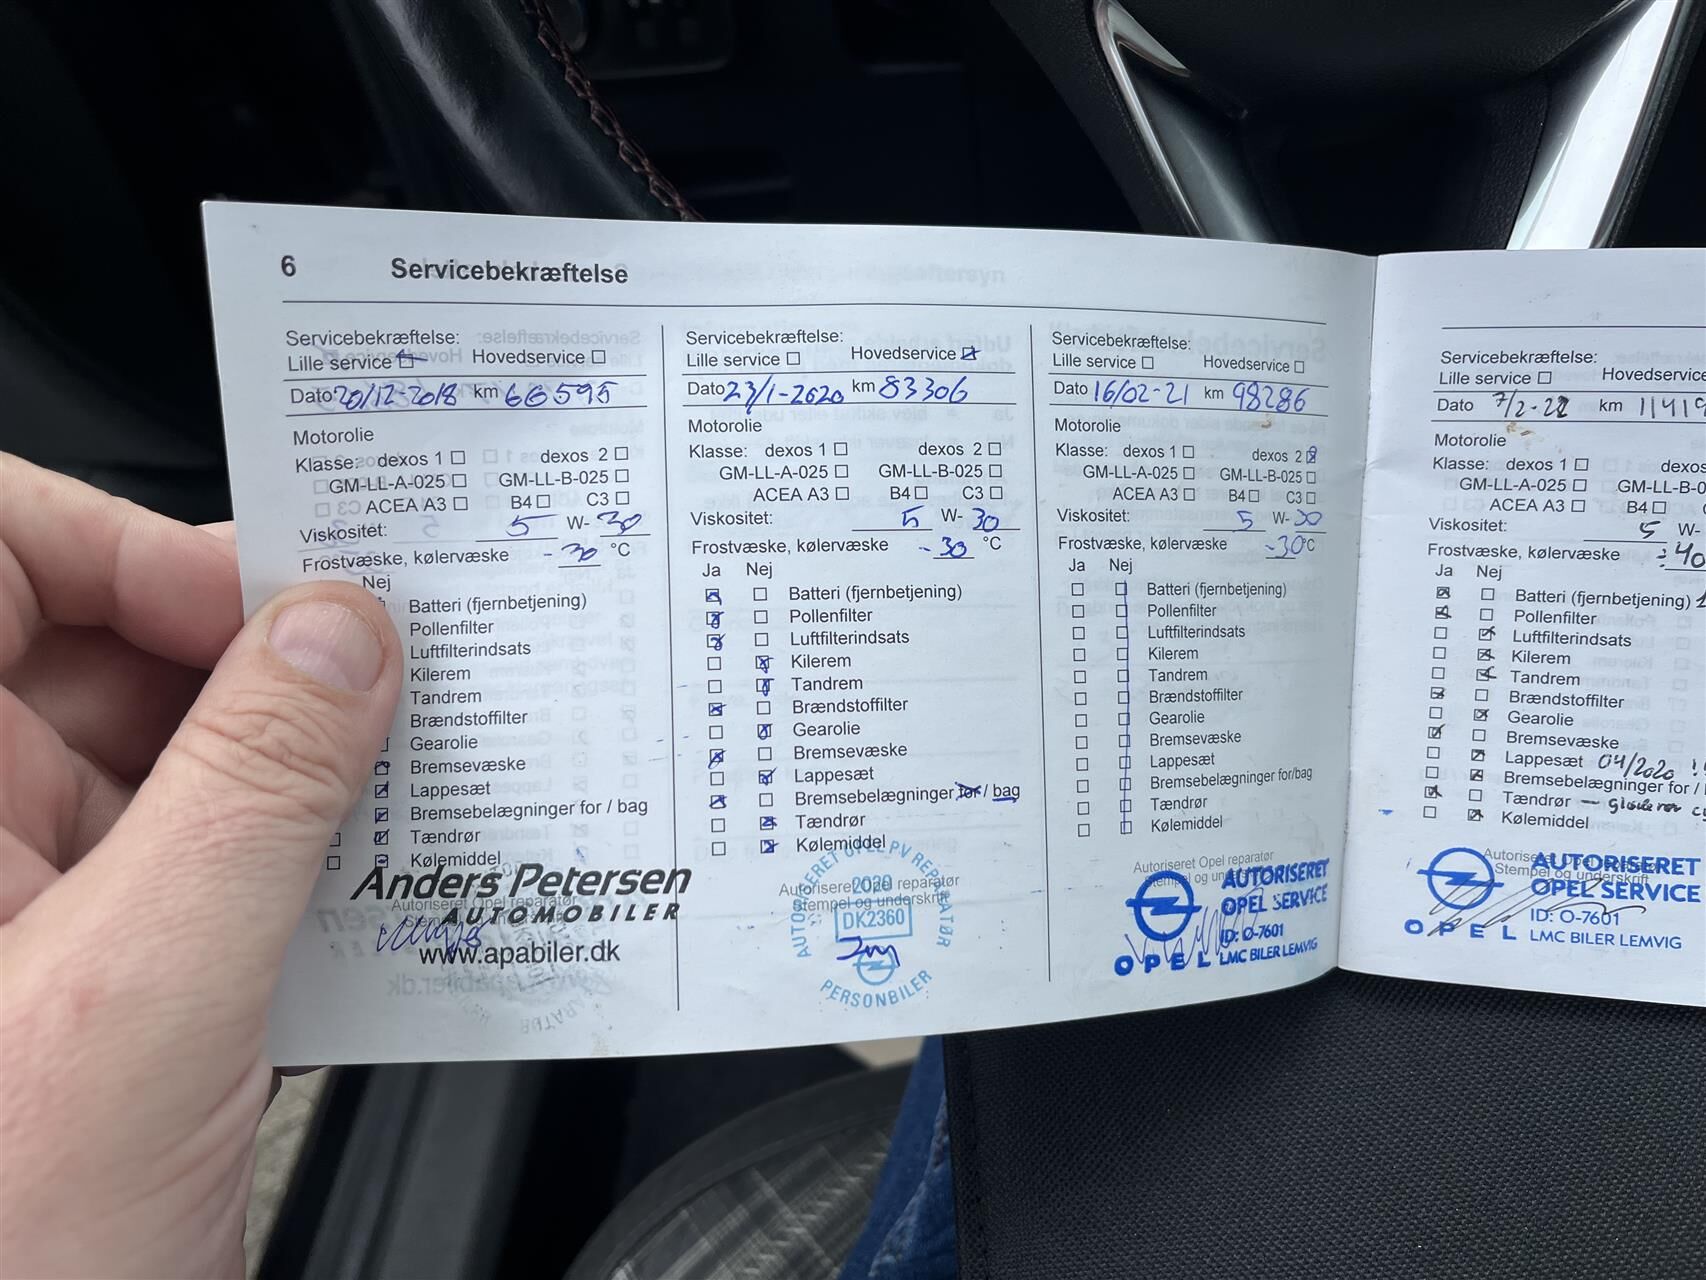 6 Servicebekræftelse
Servicebekræftelse:
Lille service ☐ Hovedservice ☐
Dato 20/12-2018 km 66595
Motorolie
Klasse: dexos 1 ☐ dexos 2 ☐
GM-LL-A-025 ☐ GM-LL-B-025 ☐
ACEA A3 ☐ B4 ☐ C3 ☐
Viskositet: 5 W- 30
Frostvæske, kølervæske -30 °C
Nej
Batteri (fjernbetjening)
Pollenfilter
Luftfilterindsats
Kilerem
Tandrem
Brændstoffilter
Gearolie
Bremsevæske
Lappesæt
Bremsebelægninger for / bag
Tændrør
Kølemiddel
Autoriseret Opel reparatør
Anders Petersen
AUTOMOBILER
www.apabiler.dk
Servicebekræftelse:
Lille service ☐ Hovedservice ☒
Dato 23/1-2020 km 83306
Motorolie
Klasse: dexos 1 ☐ dexos 2 ☐
GM-LL-A-025 ☐ GM-LL-B-025 ☐
ACEA A3 ☐ B4 ☐ C3 ☐
Viskositet: 5 W- 30
Frostvæske, kølervæske -30 °C
Ja Nej
☒ ☐ Batteri (fjernbetjening)
☒ ☐ Pollenfilter
☒ ☐ Luftfilterindsats
☐ ☒ Kilerem
☐ ☒ Tandrem
☒ ☐ Brændstoffilter
☐ ☒ Gearolie
☒ ☐ Bremsevæske
☐ ☒ Lappesæt
☒ ☐ Bremsebelægninger for / bag
☐ ☒ Tændrør
☐ ☒ Kølemiddel
Autoriseret Opel reparatør
Stempel og underskrift
AUTORISERET OPEL PV REPARATØR
2020
DK2360
PERSONBILER
Servicebekræftelse:
Lille service ☐ Hovedservice ☐
Dato 16/02-21 km 98286
Motorolie
Klasse: dexos 1 ☐ dexos 2 ☒
GM-LL-A-025 ☐ GM-LL-B-025 ☐
ACEA A3 ☐ B4 ☐ C3 ☐
Viskositet: 5 W- 30
Frostvæske, kølervæske -30 °C
Ja Nej
☐ ☐ Batteri (fjernbetjening)
☐ ☐ Pollenfilter
☐ ☐ Luftfilterindsats
☐ ☐ Kilerem
☐ ☐ Tandrem
☐ ☐ Brændstoffilter
☐ ☐ Gearolie
☐ ☐ Bremsevæske
☐ ☐ Lappesæt
☐ ☐ Bremsebelægninger for/bag
☐ ☐ Tændrør
☐ ☐ Kølemiddel
Autoriseret Opel reparatør
Stempel og underskrift
AUTORISERET
OPEL SERVICE
ID: O-7601
OPEL LMC BILER LEMVIG
Servicebekræftelse:
Lille service ☐ Hovedservice
Dato 7/2-22 km
Motorolie
Klasse: dexos 1 ☐ dexos
GM-LL-A-025 ☐ GM-LL-B-0
ACEA A3 ☐ B4 ☐
Viskositet: 5 W-
Frostvæske, kølervæske ÷40
Ja Nej
☒ ☐ Batteri (fjernbetjening)
☒ ☐ Pollenfilter
☐ ☒ Luftfilterindsats
☐ ☒ Kilerem
☐ ☒ Tandrem
☒ ☐ Brændstoffilter
☐ ☒ Gearolie
☒ ☐ Bremsevæske
☐ ☒ Lappesæt 04/2020 !
☐ ☒ Bremsebelægninger for /
☒ ☐ Tændrør
☐ ☒ Kølemiddel
Autoriseret Opel reparatør
Stempel og underskrift
AUTORISERET
OPEL SERVICE
ID: O-7601
OPEL LMC BILER LEMVIG